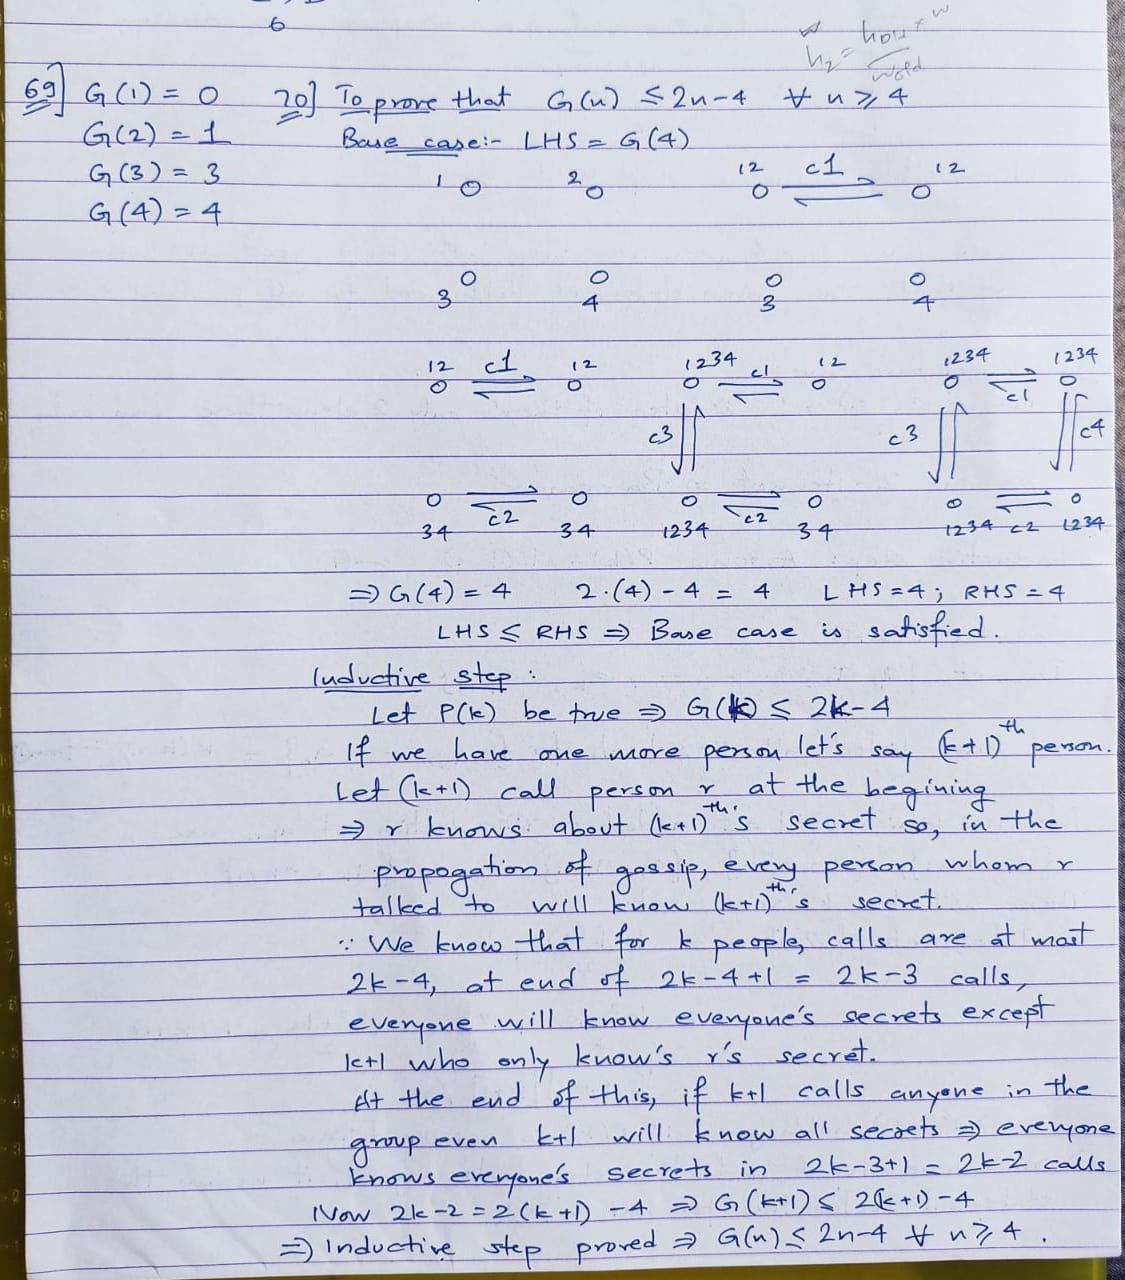 6
h₂ = hold × w / wold
69] G(1) = 0
G(2) = 1
G(3) = 3
G(4) = 4
20] To prove that G(n) ≤ 2n-4 ∀ n ≥ 4
Base case:- LHS = G(4)
1 2 12 c1 12
3 4 3 4
12 c1 12 1234 c1 12 1234 c1 1234
c3 c3 c4
34 c2 34 1234 c2 34 1234 c2 1234
⇒ G(4) = 4 2·(4) - 4 = 4 LHS = 4; RHS = 4
LHS ≤ RHS ⇒ Base case is satisfied.
Inductive step :
Let P(k) be true ⇒ G(k) ≤ 2k-4
If we have one more person let's say (k+1)th person.
Let (k+1) call person r at the begining
⇒ r knows about (k+1)th's secret so, in the
propogation of gossip, every person whom r
talked to will know (k+1)th's secret.
∵ We know that for k people, calls are at most
2k-4, at end of 2k-4+1 = 2k-3 calls,
everyone will know everyone's secrets except
k+1 who only know's r's secret.
At the end of this, if k+1 calls anyone in the
group even k+1 will know all secrets ⇒ everyone
knows everyone's secrets in 2k-3+1 = 2k-2 calls
Now 2k-2 = 2(k+1) - 4 ⇒ G(k+1) ≤ 2(k+1) - 4
⇒ Inductive step proved ⇒ G(n) ≤ 2n-4 ∀ n ≥ 4 .